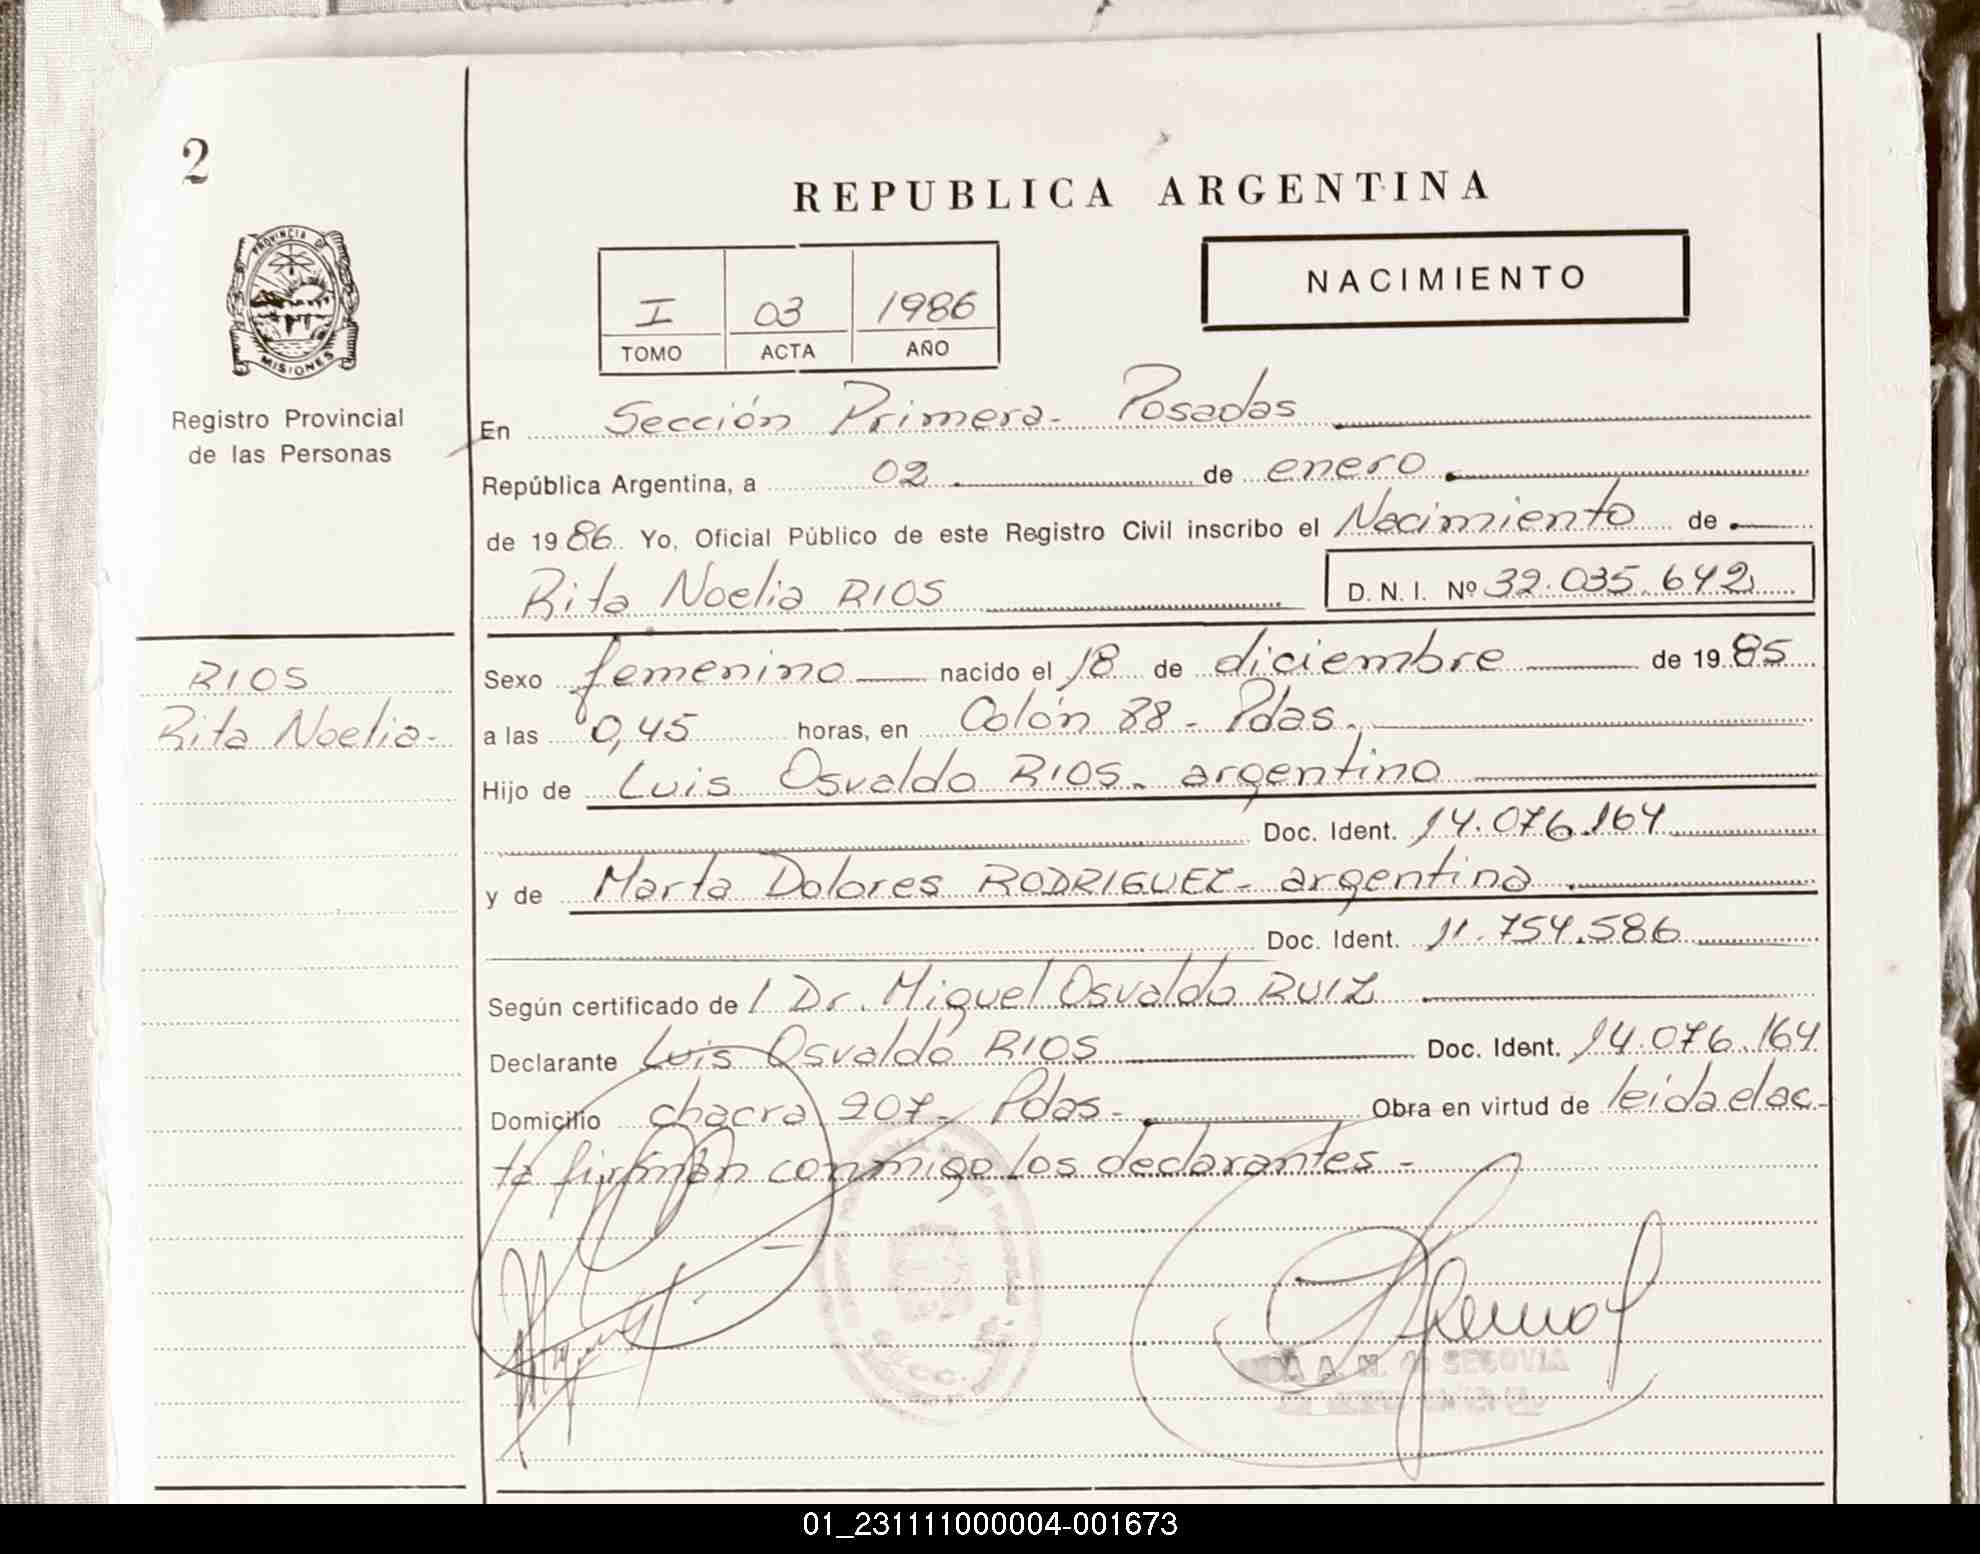 2
REPUBLICA ARGENTINA
PROVINCIA DE
MISIONES
Registro Provincial
de las Personas
I 03 1986
TOMO ACTA AÑO
NACIMIENTO
En Sección Primera- Posadas
República Argentina, a 02 de enero
de 1986 Yo, Oficial Público de este Registro Civil inscribo el Nacimiento de
Rita Noelia RIOS D. N. I. Nº 32.035.642
RIOS
Rita Noelia-
Sexo femenino nacido el 18 de diciembre de 1985
a las 0,45 horas, en Colón 88- Pdas.
Hijo de Luis Osvaldo RIOS- argentino
Doc. Ident. 14.076.164
y de Marta Dolores RODRIGUEZ- argentina
Doc. Ident. 11.754.586
Según certificado de / Dr. Miguel Osvaldo RUIZ
Declarante Luis Osvaldo RIOS Doc. Ident. 14.076.164
Domicilio chacra 207- Pdas- Obra en virtud de leida el ac-
ta firman conmigo los declarantes-
SEGOVIA
01_231111000004-001673